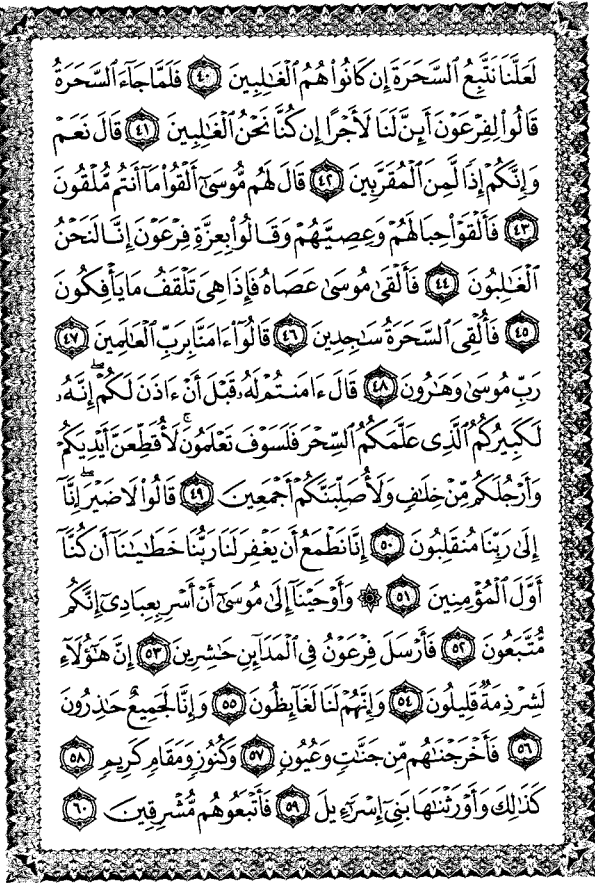 لَعَلَّنَا نَتَّبِعُ ٱلسَّحَرَةَ إِن كَانُوا۟ هُمُ ٱلْغَٰلِبِينَ ٤٠ فَلَمَّا جَآءَ ٱلسَّحَرَةُ
قَالُوا۟ لِفِرْعَوْنَ أَئِنَّ لَنَا لَأَجْرًا إِن كُنَّا نَحْنُ ٱلْغَٰلِبِينَ ٤١ قَالَ نَعَمْ
وَإِنَّكُمْ إِذًا لَّمِنَ ٱلْمُقَرَّبِينَ ٤٢ قَالَ لَهُم مُّوسَىٰٓ أَلْقُوا۟ مَآ أَنتُم مُّلْقُونَ
٤٣ فَأَلْقَوْا۟ حِبَالَهُمْ وَعِصِيَّهُمْ وَقَالُوا۟ بِعِزَّةِ فِرْعَوْنَ إِنَّا لَنَحْنُ
ٱلْغَٰلِبُونَ ٤٤ فَأَلْقَىٰ مُوسَىٰ عَصَاهُ فَإِذَا هِىَ تَلْقَفُ مَا يَأْفِكُونَ
٤٥ فَأُلْقِىَ ٱلسَّحَرَةُ سَٰجِدِينَ ٤٦ قَالُوٓا۟ ءَامَنَّا بِرَبِّ ٱلْعَٰلَمِينَ ٤٧
رَبِّ مُوسَىٰ وَهَٰرُونَ ٤٨ قَالَ ءَامَنتُمْ لَهُۥ قَبْلَ أَنْ ءَاذَنَ لَكُمْ ۖ إِنَّهُۥ
لَكَبِيرُكُمُ ٱلَّذِى عَلَّمَكُمُ ٱلسِّحْرَ فَلَسَوْفَ تَعْلَمُونَ ۚ لَأُقَطِّعَنَّ أَيْدِيَكُمْ
وَأَرْجُلَكُم مِّنْ خِلَٰفٍ وَلَأُصَلِّبَنَّكُمْ أَجْمَعِينَ ٤٩ قَالُوا۟ لَا ضَيْرَ ۖ إِنَّآ
إِلَىٰ رَبِّنَا مُنقَلِبُونَ ٥٠ إِنَّا نَطْمَعُ أَن يَغْفِرَ لَنَا رَبُّنَا خَطَٰيَٰنَآ أَن كُنَّآ
أَوَّلَ ٱلْمُؤْمِنِينَ ٥١ ۞ وَأَوْحَيْنَآ إِلَىٰ مُوسَىٰٓ أَنْ أَسْرِ بِعِبَادِىٓ إِنَّكُم
مُّتَّبَعُونَ ٥٢ فَأَرْسَلَ فِرْعَوْنُ فِى ٱلْمَدَآئِنِ حَٰشِرِينَ ٥٣ إِنَّ هَٰٓؤُلَآءِ
لَشِرْذِمَةٌ قَلِيلُونَ ٥٤ وَإِنَّهُمْ لَنَا لَغَآئِظُونَ ٥٥ وَإِنَّا لَجَمِيعٌ حَٰذِرُونَ
٥٦ فَأَخْرَجْنَٰهُم مِّن جَنَّٰتٍ وَعُيُونٍ ٥٧ وَكُنُوزٍ وَمَقَامٍ كَرِيمٍ ٥٨
كَذَٰلِكَ وَأَوْرَثْنَٰهَا بَنِىٓ إِسْرَٰٓءِيلَ ٥٩ فَأَتْبَعُوهُم مُّشْرِقِينَ ٦٠